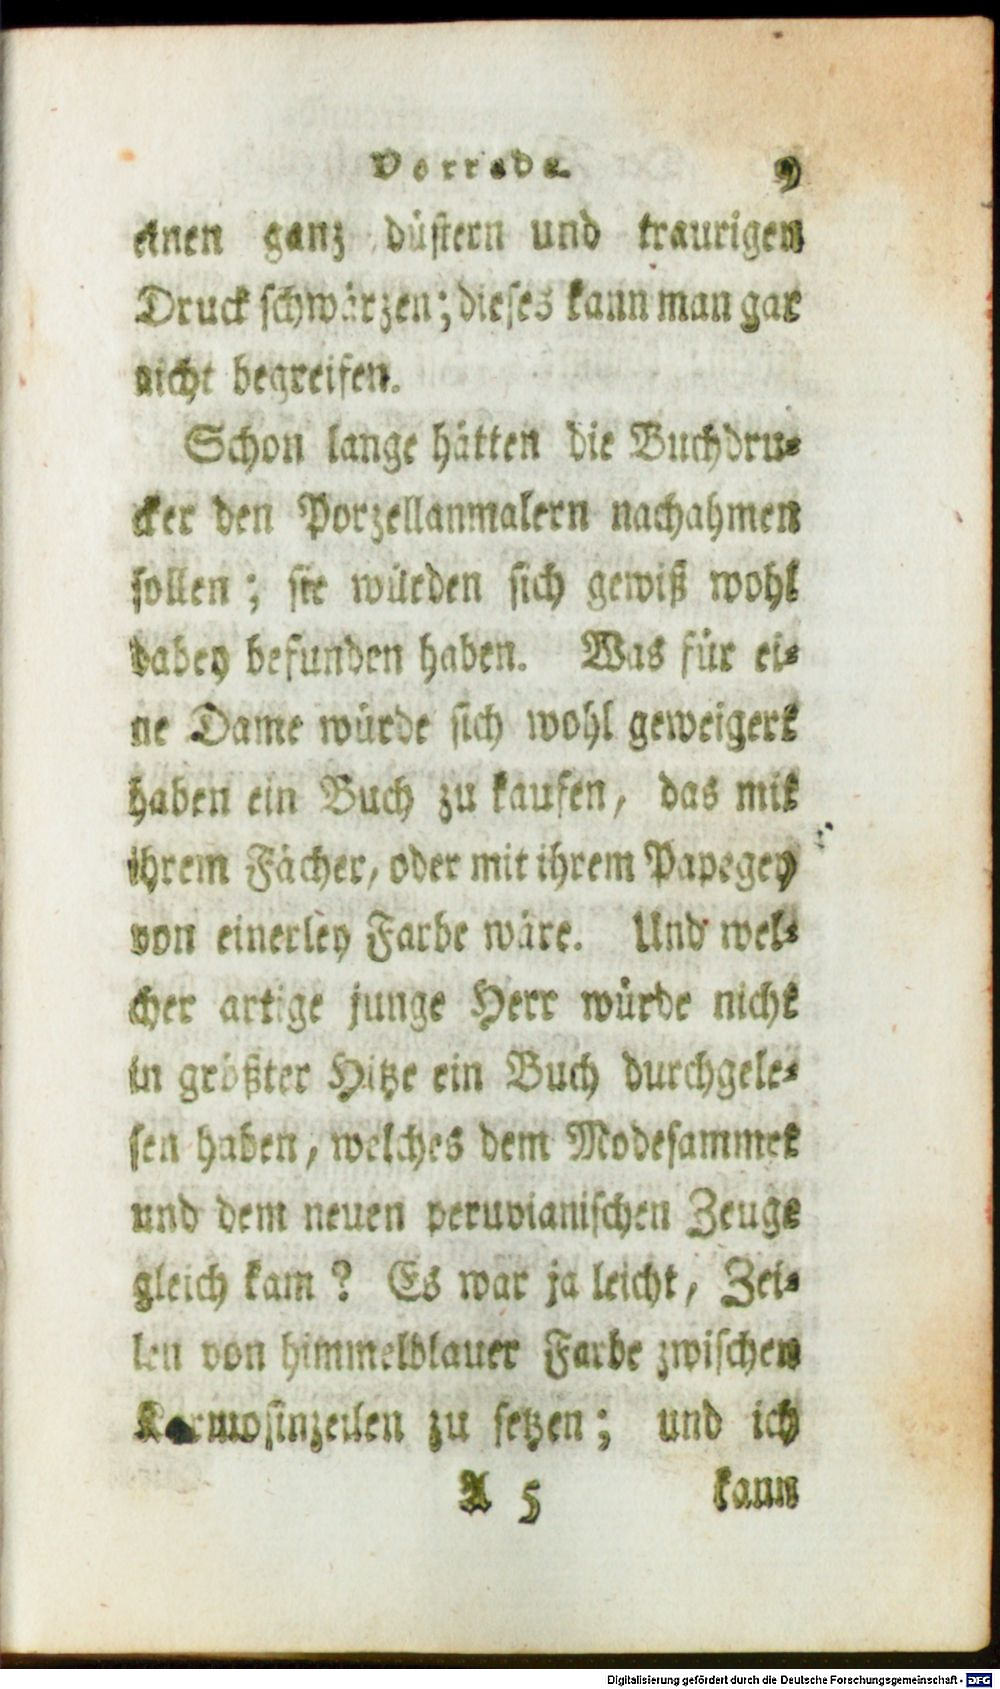 Vorrede. 9
einen ganz düstern und traurigen
Druck schwärzen; dieses kann man gar
nicht begreifen.
Schon lange hätten die Buchdru-
cker den Porzellanmalern nachahmen
sollen; sie würden sich gewiß wohl
dabey befunden haben. Was für ei-
ne Dame würde sich wohl geweigert
haben ein Buch zu kaufen, das mit
ihrem Fächer, oder mit ihrem Papegey
von einerley Farbe wäre. Und wel-
cher artige junge Herr würde nicht
in größter Hitze ein Buch durchgele-
sen haben, welches dem Modesammet
und dem neuen peruvianischen Zeuge
gleich kam? Es war ja leicht, Zei-
len von himmelblauer Farbe zwischen
Karmosinzeilen zu setzen; und ich
A 5 kann
Digitalisierung gefördert durch die Deutsche Forschungsgemeinschaft - DFG